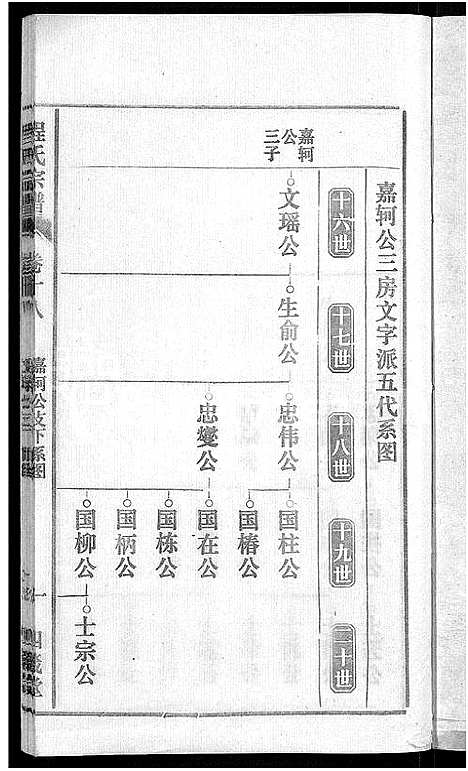 嘉轲公三房文字派五代系图
十六世
十七世
十八世
十九世
二十世
嘉轲公三子
文瑶公
生俞公
忠伟公
忠燮公
国柱公
国椿公
国在公
国栋公
国柄公
国柳公
士宗公
程氏宗谱
卷十八
嘉轲公支下系图